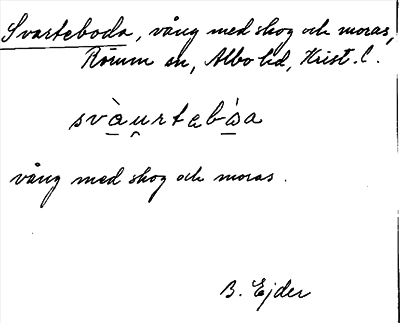 Svarteboda, vång med skog och moras,
Rörum sn, Albo hd, Krist. l.
svàu̯rtebàsa
vång med skog och moras.
B. Ejder